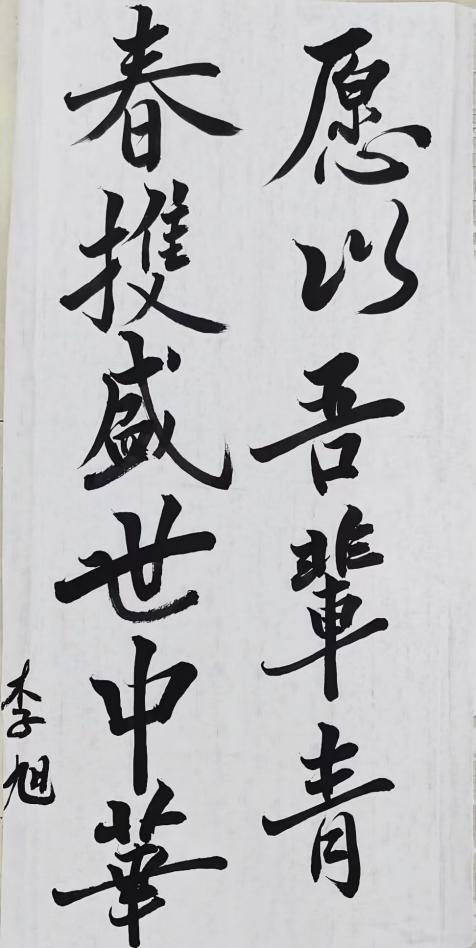 愿以吾輩青
春擭盛世中華
李旭